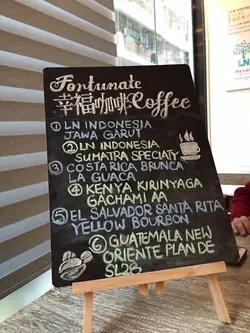 Fortunate
幸福咖啡Coffee
① LN INDONESIA
JAWA GARUT
② LN INDONESIA
SUMATRA SPECIATY
③ COSTA RICA BRUNCA
LA GUACA
④ KENYA KIRINYAGA
GACHAMI AA
⑤ EL SALVADOR SANTA RITA
YELLOW BOURBON
⑥ GUATEMALA NEW
ORIENTE PLAN DE
SL28
LN